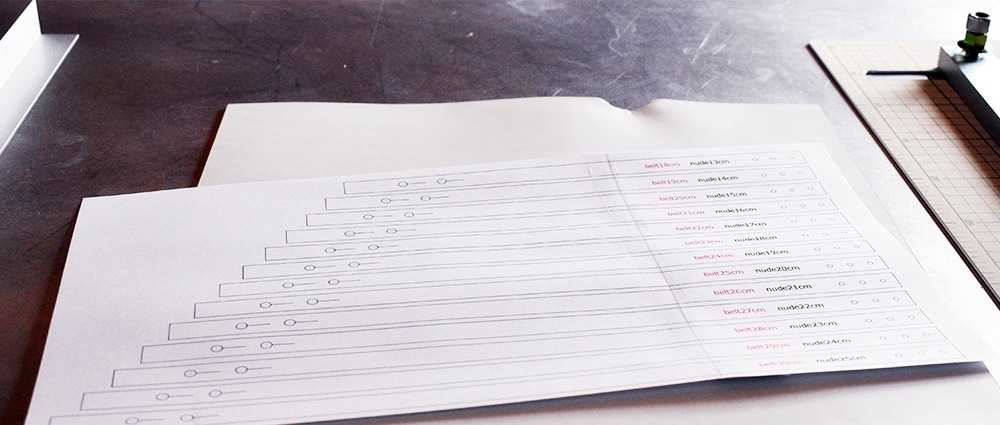 belt18cm nude13cm
belt19cm nude14cm
belt20cm nude15cm
belt21cm nude16cm
belt22cm nude17cm
belt23cm nude18cm
belt24cm nude19cm
belt25cm nude20cm
belt26cm nude21cm
belt27cm nude22cm
belt28cm nude23cm
belt29cm nude24cm
belt30cm nude25cm